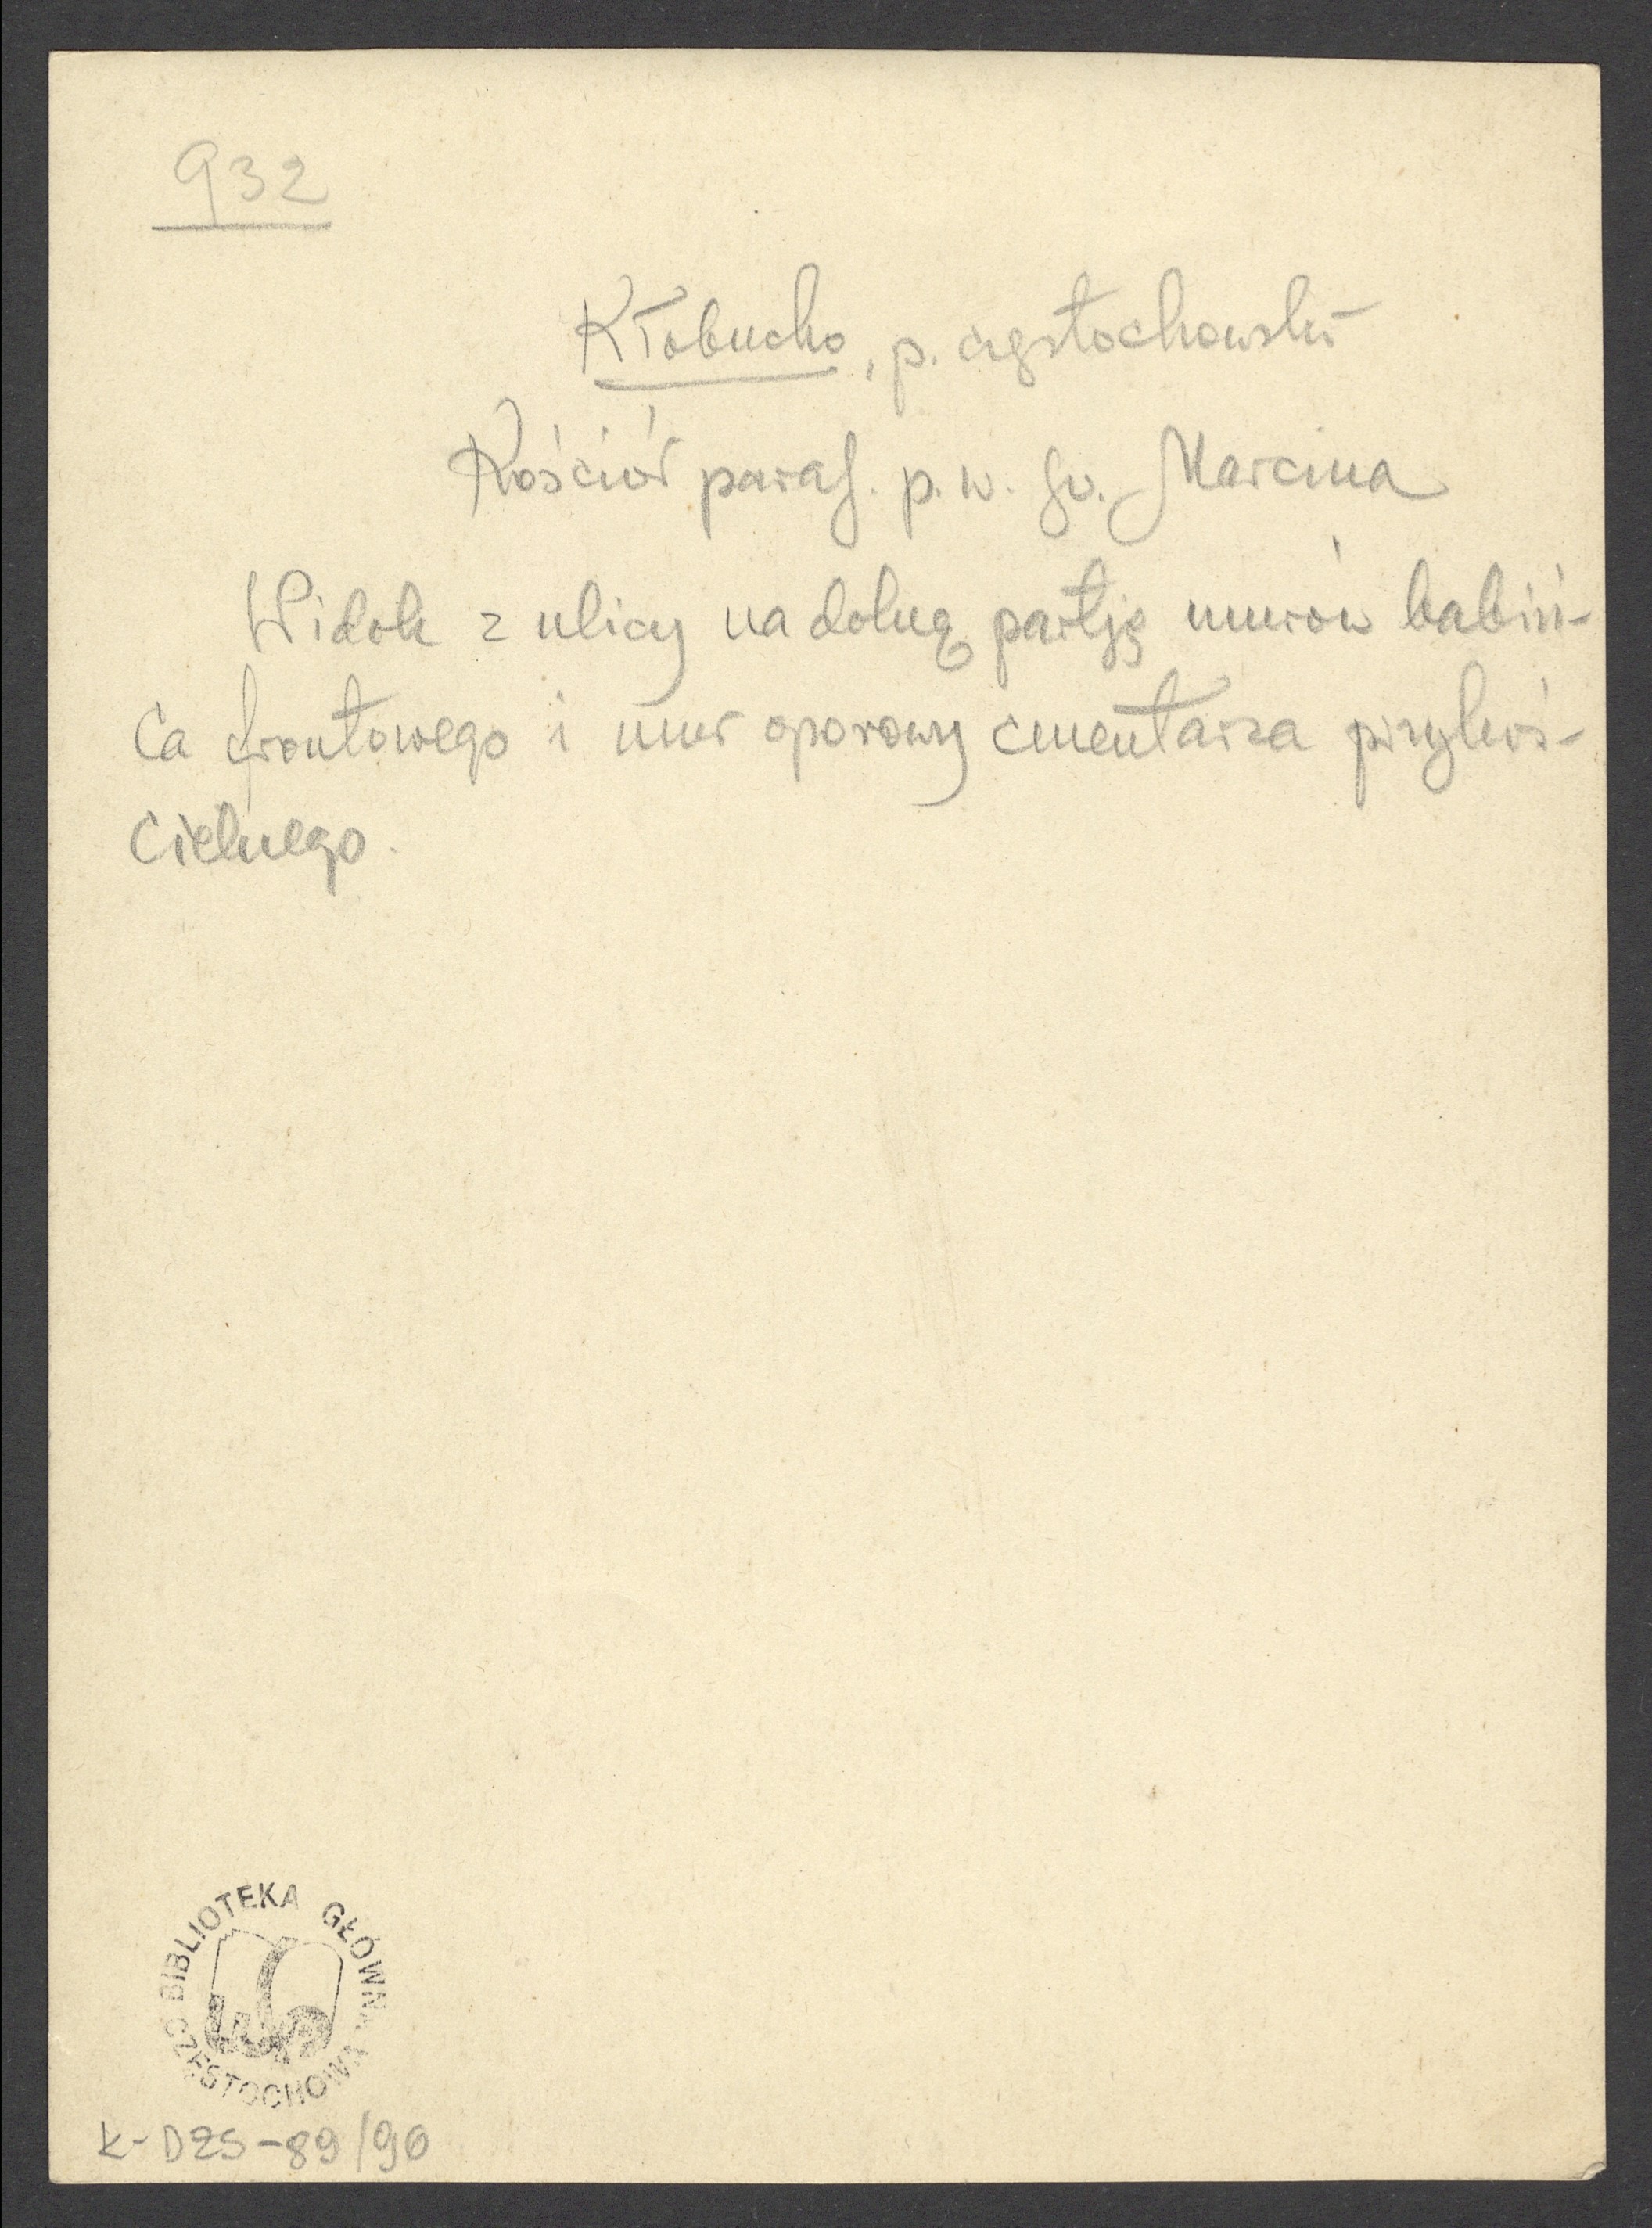 932
Kłobucko, p. częstochowski
Kościół paraf. p. w. św. Marcina
Widok z ulicy na dolną partję murów babiń-
ca frontowego i mur oporowy cmentarza przykoś-
cielnego.
BIBLIOTEKA GŁÓWNA
CZĘSTOCHOWA
K-D25-89/90